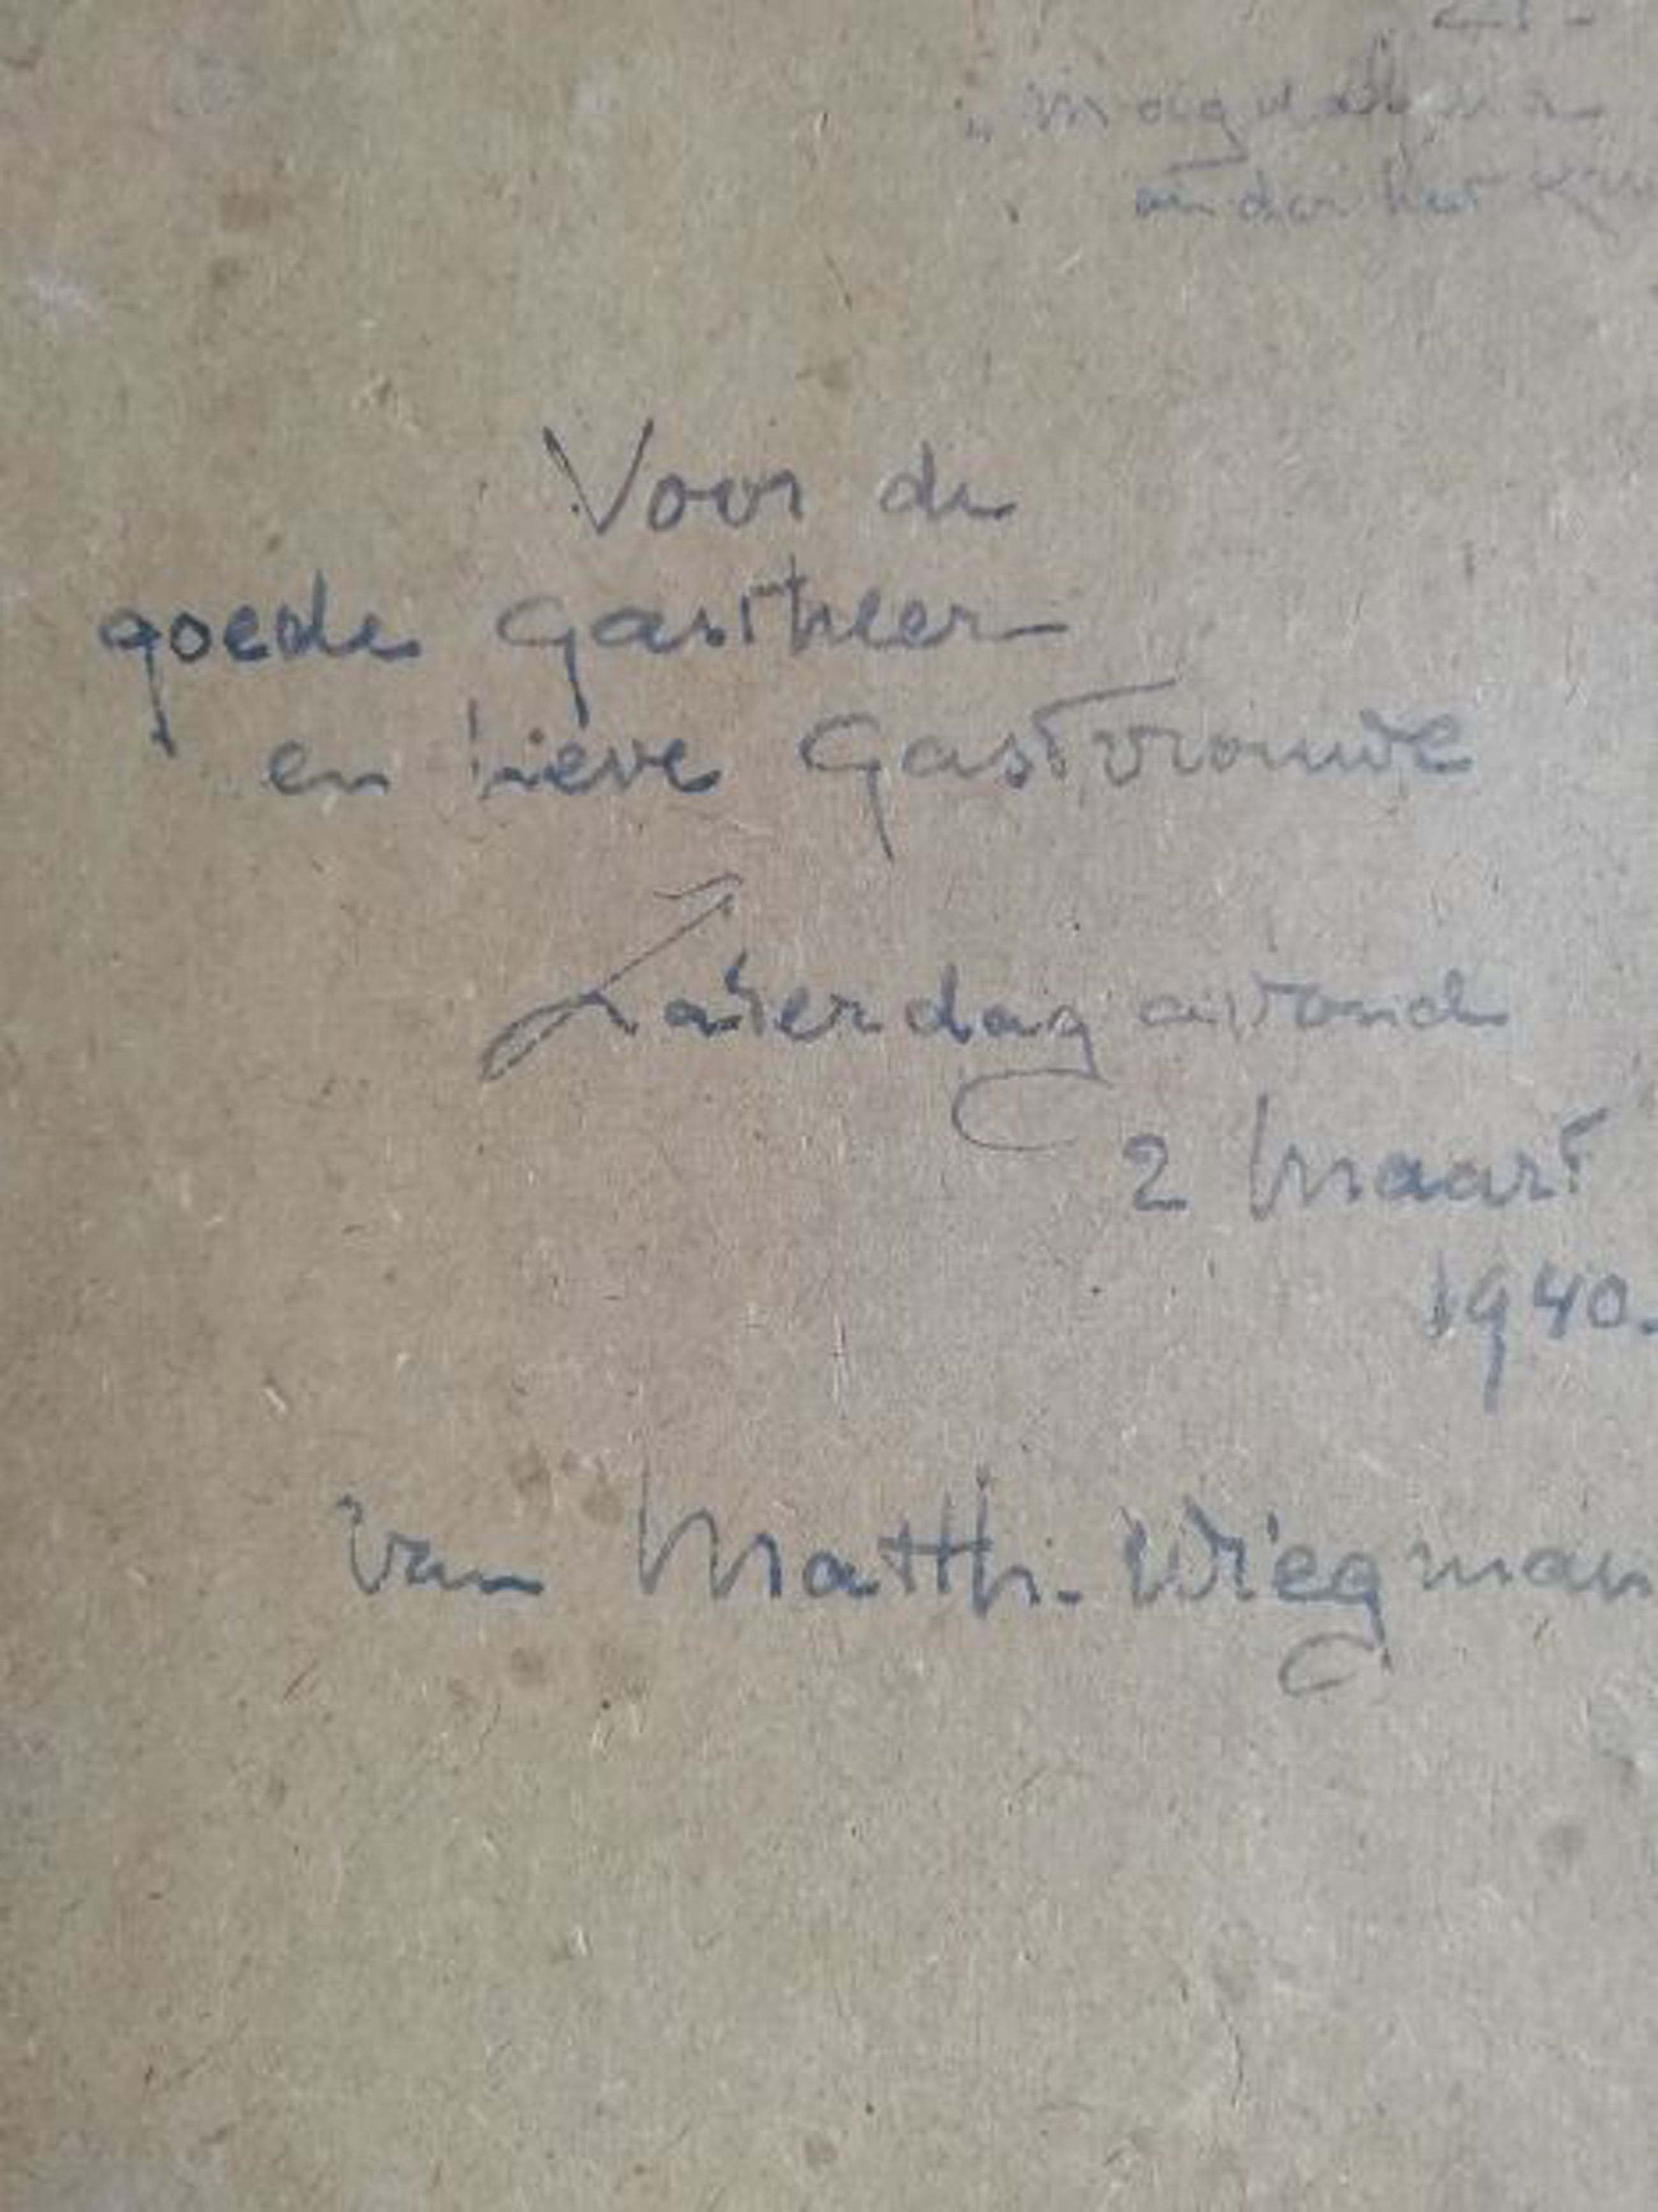 „Magdalena
onder het
Voor de
goede Gastheer
en lieve Gastvrouwe
Zaterdag avond
2 Maart
1940.
van Matth. Wiegman